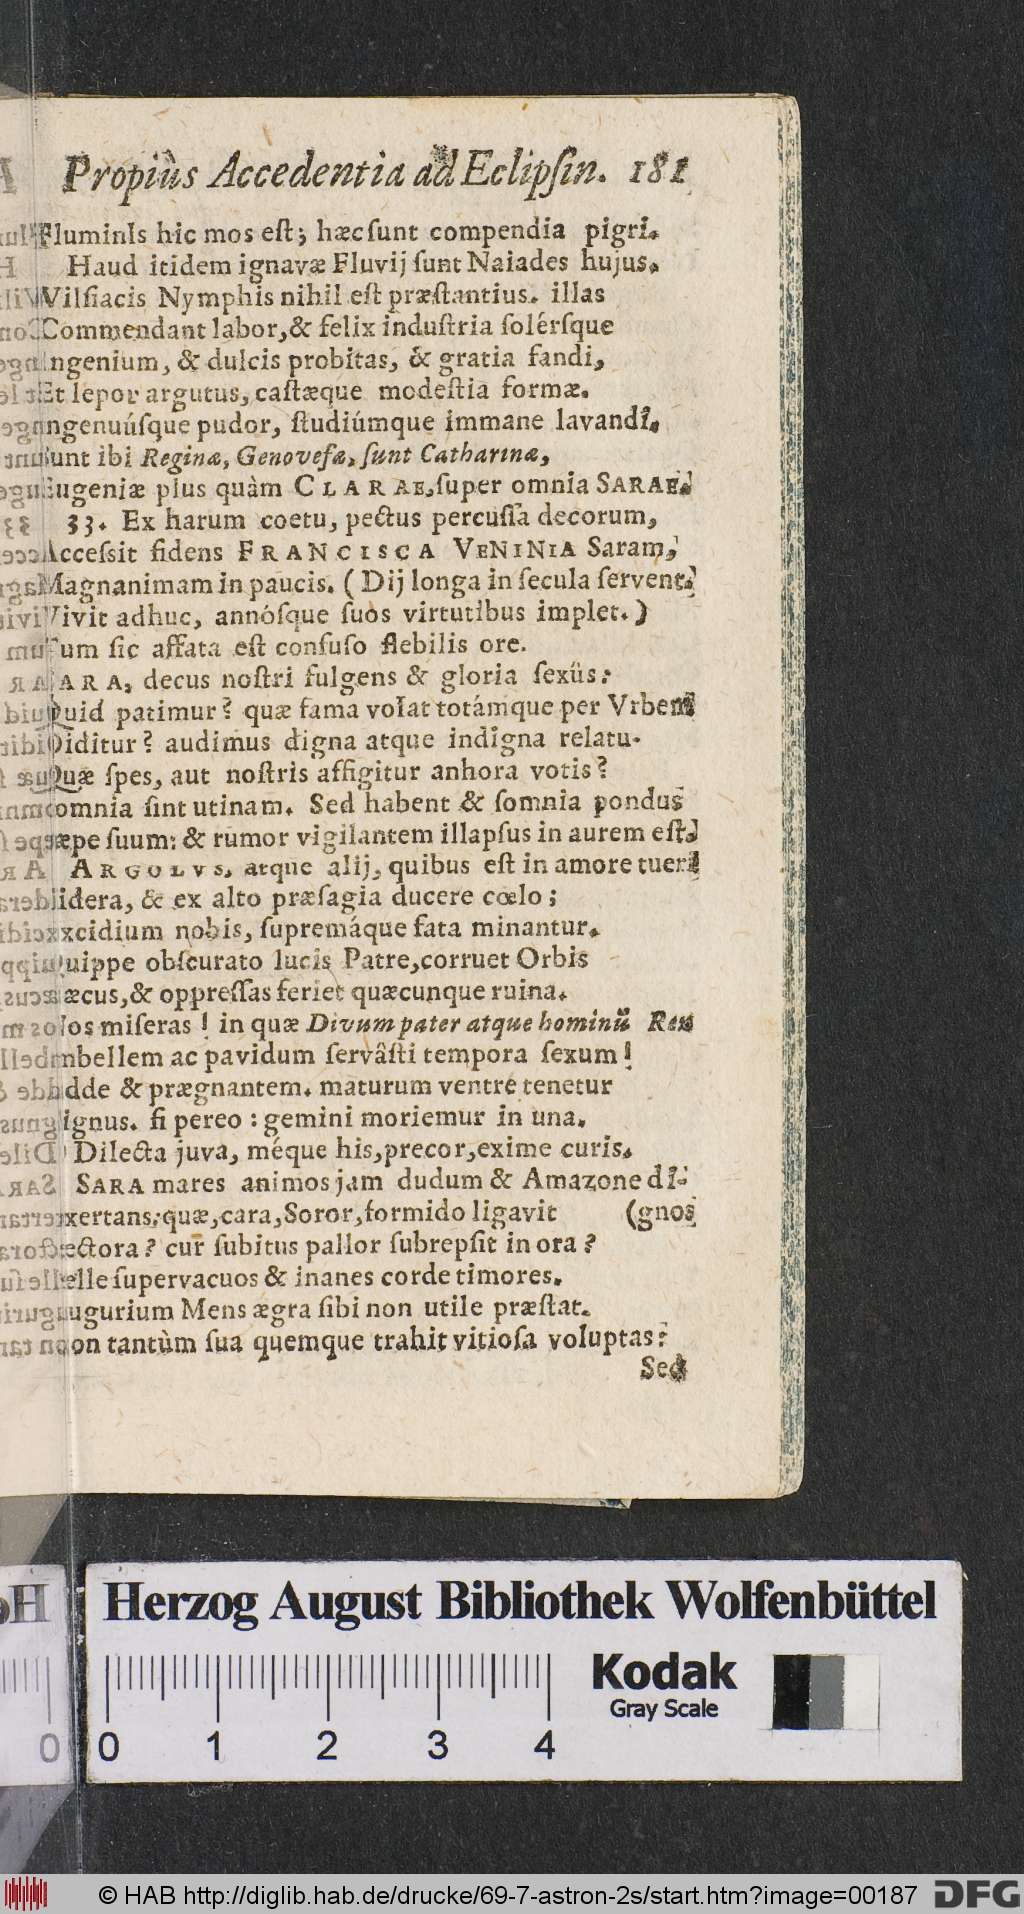 Propiùs Accedentia ad Eclipſin. 181
FluminIs hic mos eſt; hæc ſunt compendia pigri.
Haud itidem ignavæ Fluvij ſunt Naiades hujus.
Vilſiacis Nymphis nihil eſt præſtantius. illas
Commendant labor, & felix induſtria ſolérſque
Ingenium, & dulcis probitas, & gratia fandi,
Et lepor argutus, caſtæque modeſtia formæ.
Ingenuúſque pudor, ſtudiúmque immane lavandi.
Sunt ibi Reginæ, Genovefæ, ſunt Catharinæ,
Eugeniæ plus quàm CLARAE, ſuper omnia SARAE.
33. Ex harum coetu, pectus percuſſa decorum,
Acceſsit fidens FRANCISCA VENINIA Saram,
Magnanimam in paucis. (Dij longa in ſecula ſervent.
Vivit adhuc, annóſque ſuos virtutibus implet.)
Tum ſic affata eſt confuſo flebilis ore.
ARA, decus noſtri fulgens & gloria ſexûs:
Quid patimur? quæ fama volat totámque per Vrbem
Diditur? audimus digna atque indigna relatu.
Quæ ſpes, aut noſtris affigitur anhora votis?
omnia ſint utinam. Sed habent & ſomnia pondus
æpe ſuum: & rumor vigilantem illapſus in aurem eſt.
ARGOLVS, atque alij, quibus eſt in amore tueri
idera, & ex alto præſagia ducere cœlo;
xcidium nobis, ſupremáque fata minantur.
uippe obſcurato lucis Patre, corruet Orbis
æcus, & oppreſſas feriet quæcunque ruina.
os miſeras! in quæ Divum pater atque hominũ Rex
mbellem ac pavidum ſervâſti tempora ſexum!
dde & prægnantem. maturum ventre tenetur
ignus. ſi pereo: gemini moriemur in una.
Dilecta juva, méque his, precor, exime curis.
SARA mares animos jam dudum & Amazone di-
xertans; quæ, cara, Soror, formido ligavit (gnos
ectora? cur ſubitus pallor ſubrepſit in ora?
elle ſupervacuos & inanes corde timores.
ugurium Mens ægra ſibi non utile præſtat.
on tantùm ſua quemque trahit vitioſa voluptas:
Sed
Herzog August Bibliothek Wolfenbüttel
Kodak
Gray Scale
0 0 1 2 3 4
© HAB http://diglib.hab.de/drucke/69-7-astron-2s/start.htm?image=00187 DFG